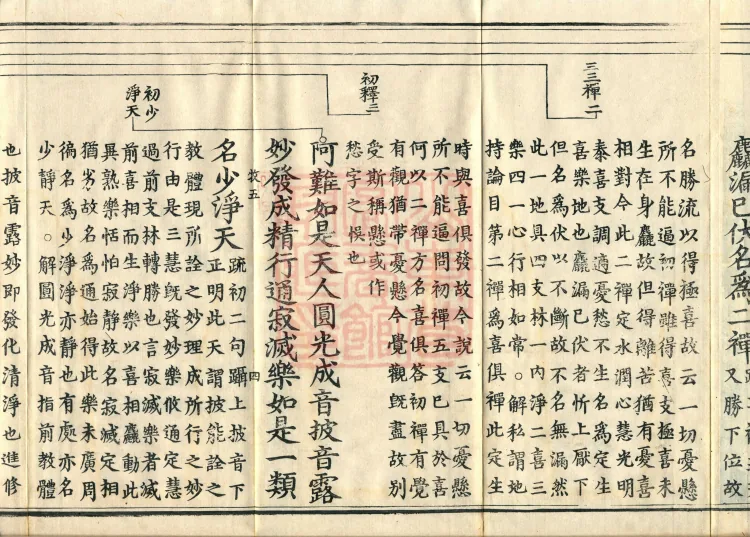 麤漏已伏名為二禪
又勝下位故
三三禪二
名勝流以得極喜故云一切憂懸
所不能逼初禪雖得喜支極喜未
生在身麤故但得離苦猶有憂喜
相對今此二禪定水潤心慧光明
泰喜支調適憂愁不生名為定生
喜樂地也麤漏已伏者忻上厭下
但名為伏以不斷故不名無漏然
此一地具四支林一內淨二喜三
樂四一心行相如常。解私謂地
持論目第二禪為喜俱禪此定生
初釋三
時與喜俱發故今說云一切憂懸
所不能逼問初禪五支已具於喜
何以二禪方名喜俱答初禪有覺
有觀猶帶憂懸今覺觀既盡故別
受斯稱懸或作
愁字之悞也
初少
淨天
阿難如是天人圓光成音披音露
妙發成精行通寂滅樂如是一類
四
名少淨天疏初二句躡上披音下
正明此天謂披能詮之
教體現所詮之妙理成所行之妙
行由是三慧既發妙樂攸通定慧
過前支林轉勝也言寂滅樂者滅
前喜相而生淨樂以喜相麤動此
異熟樂恬怕寂靜故名寂滅定相
猶劣故名為通始得此樂未廣周
徧名為少淨淨亦靜也有處亦名
少靜天。解圓光成音指前教體
也披音露妙即發化清淨也進修